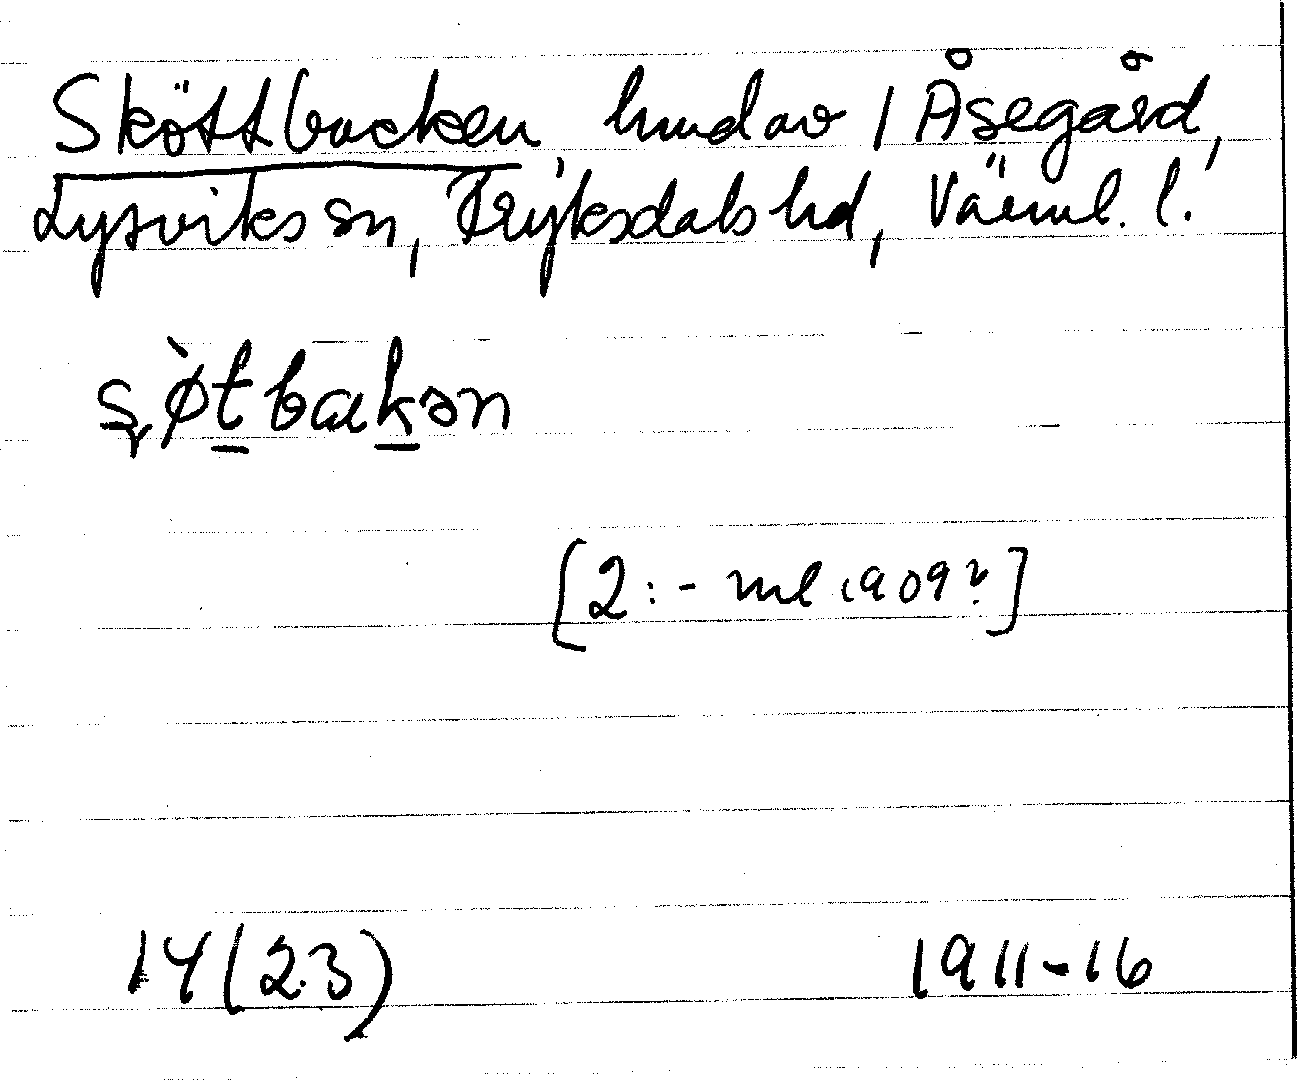 Sköttbacken, hmdav / Åsegård,
Lysviks sn, Fryksdals hd, Värml. l.
ʂø̀t̲bak̲ən
[2:- ml 1909?]
14(23)
1911-16